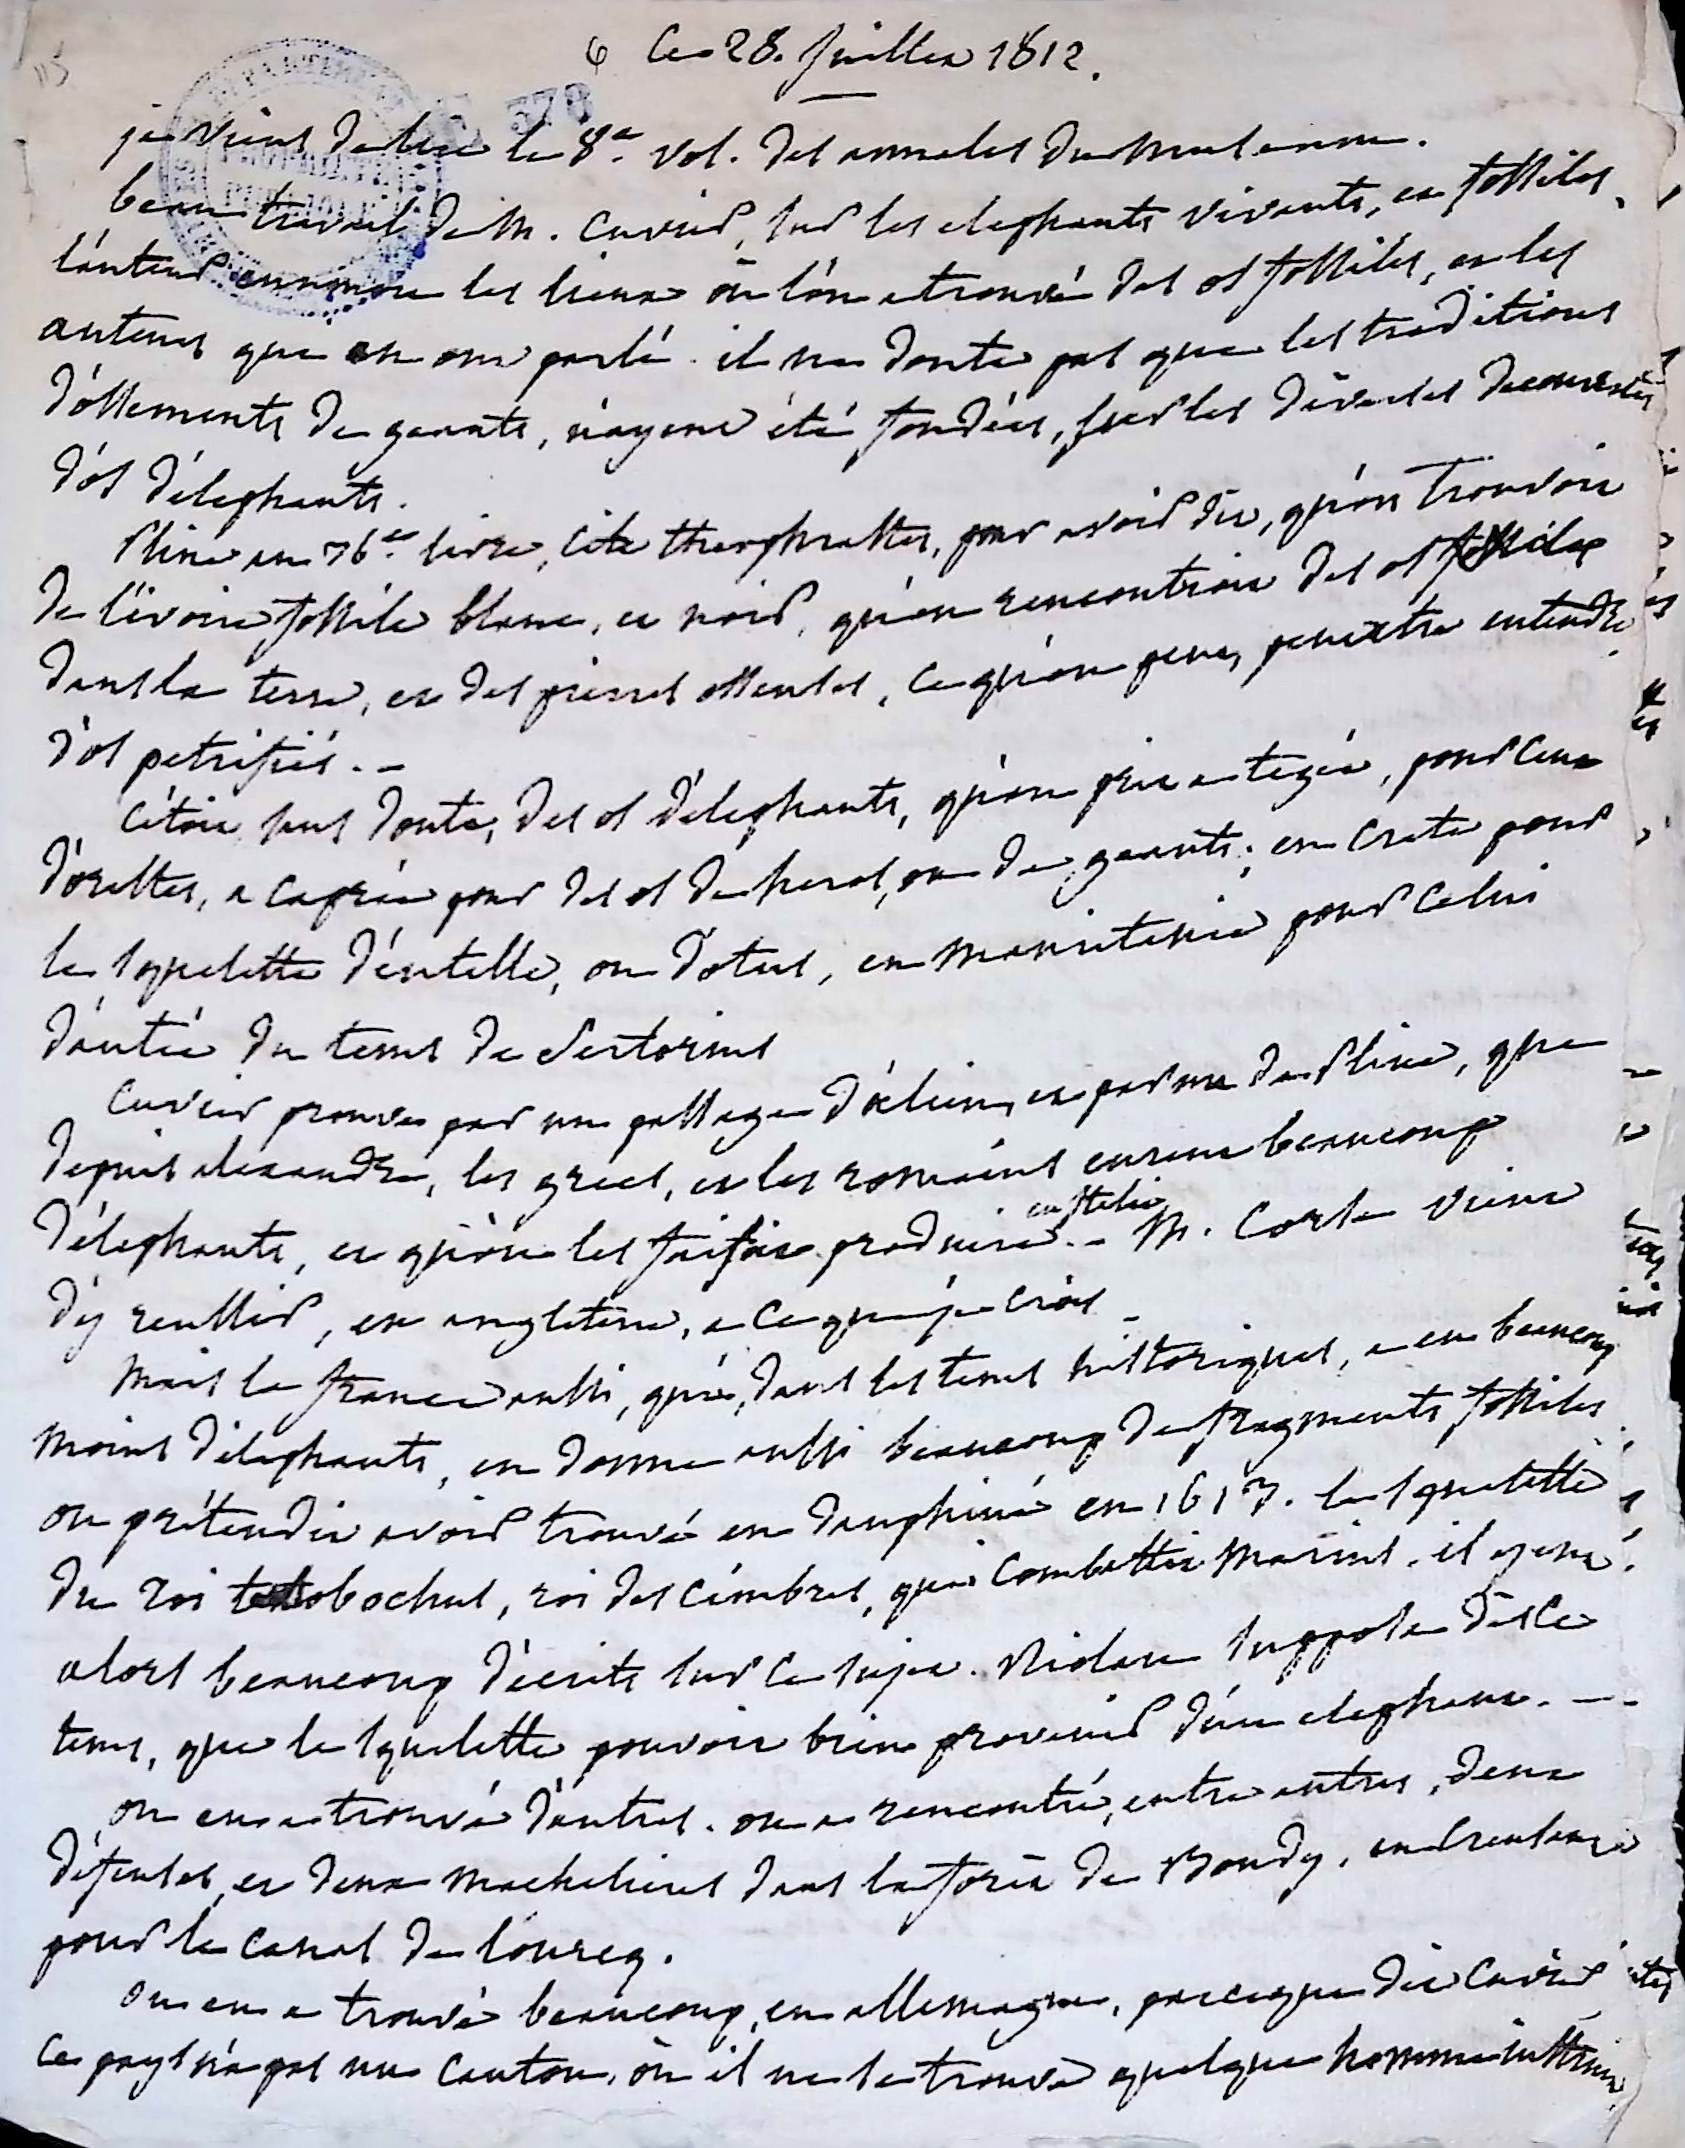 6 Ce 28. Juillet 1812.
je viens de lire le 8e. vol. des annales du Museum.
beau travail de M. Cuvier, sur les elephants vivants, et fossiles,
l'auteur enumere les lieux où l'on a trouvé des os fossiles, et les
auteurs qui en ont parlé. il ne doute pas que les traditions
d'ossements de geants, n'ayent été fondées, sur les diverses decouvertes
d'os d'elephants.
Pline au 36e. livre, cite theophrastes, pour avoir dit, qu'on trouvoit
de l'ivoire fossile blanc, et noir, qu'on rencontroit des os fossiles
dans la terre, et des pierres osseuses, ce qu'on peut, peutetre entendre
d'os petrifiés. -
C'étoit sans doute, des os d'elephants, qu'on prit a tegée, pour ceux
d'orestes, a caprée pour des os de heros, ou de geants; en Crete pour
le squelette d'entelle, ou d'otus, en Mauritanie pour celui
d'antée du tems de Sertorius
Cuvier prouve par un passage d'ælien, et par un de Pline, que
depuis alexandre, les grecs, et les romains eurent beaucoup
d'elephants, et qu'on les faisoit produire en italie. - M. Corse vient
d'y reussir, en angleterre, a ce que je crois -
Mais la france aussi, qui, dans les tems historiques, a eu beaucoup
moins d'elephants, en donne aussi beaucoup de fragments fossiles.
on prétendit avoir trouvé en dauphiné en 1613. le squelette
du roi teutobochus, roi des cimbres, qui combattit Marius. il y eut
alors beaucoup d'écrits sur ce sujet. Riolan supposa dès ce
tems, que le squelette pouvoit bien provenir d'un elephant. - -
on en a trouvé d'autres. on a rencontré, entre autres, deux
défenses, et deux machelieres dans la forêt de Bondy, en creusant
pour le canal de l'ourcq.
on en a trouvé beaucoup, en allemagne, parceque dit Cuvier
ce pays n'a pas un canton, où il ne se trouve quelque homme instruit,